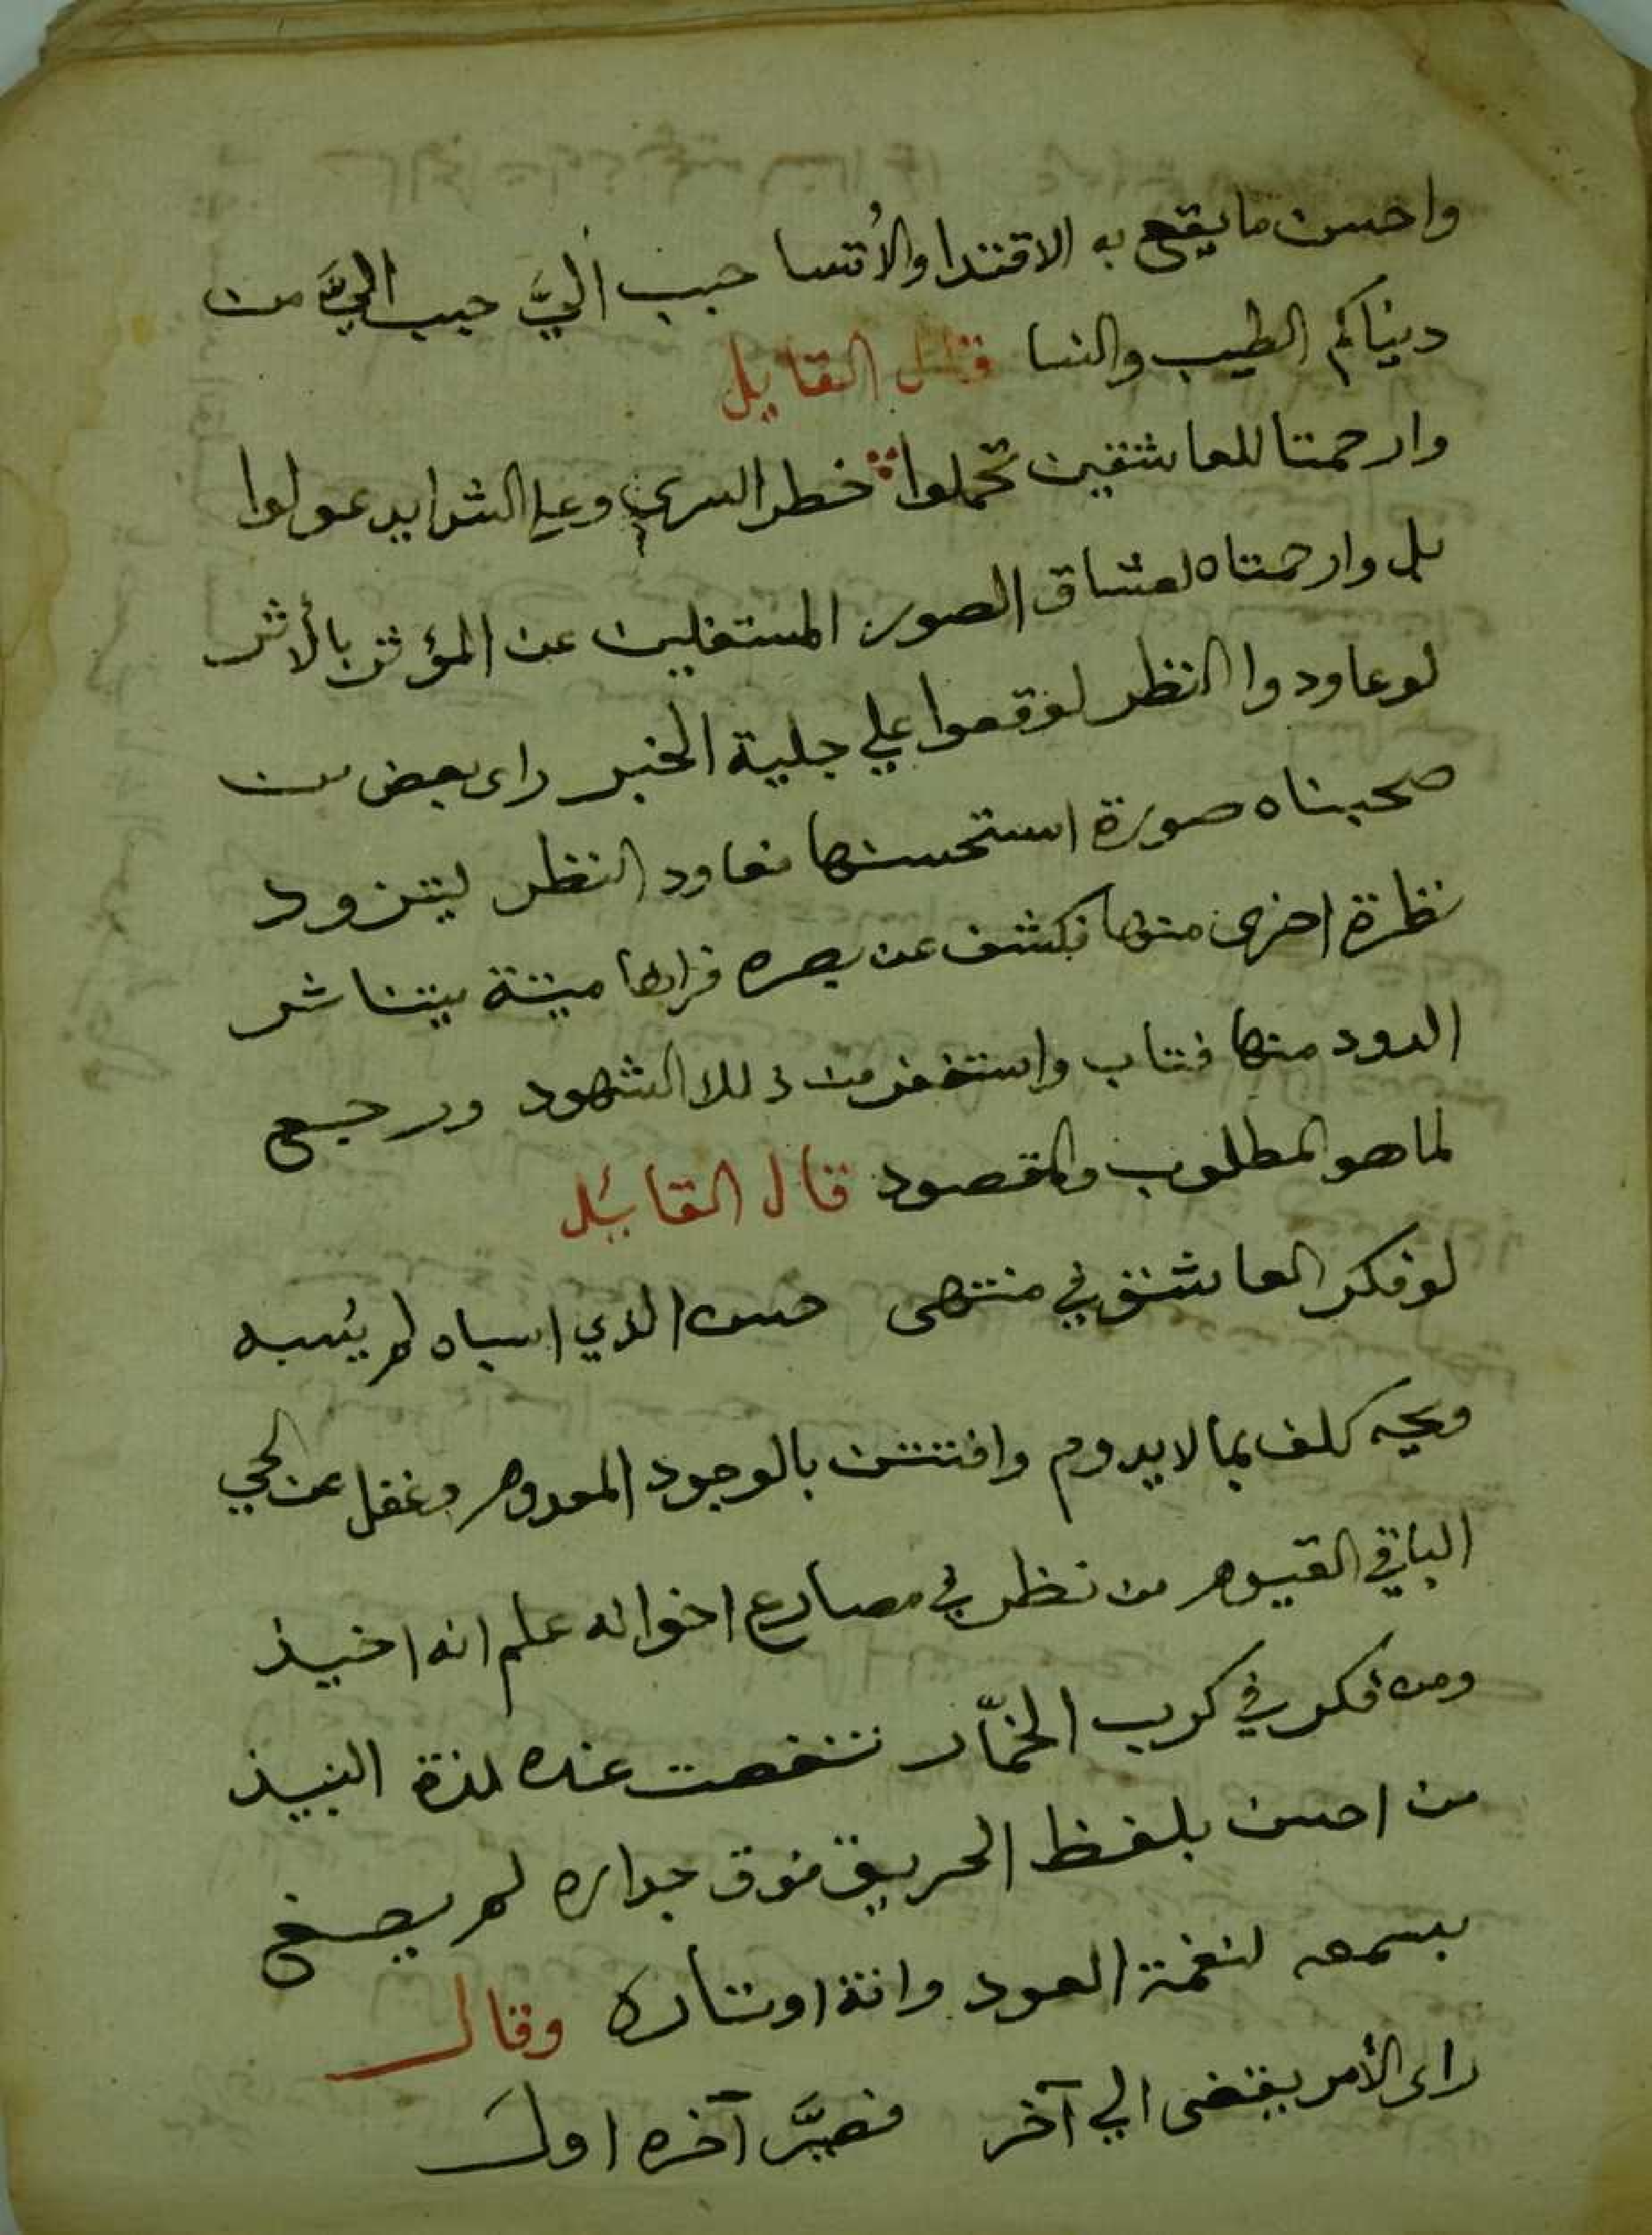 واحسن ما يقع به الاقتدا والأتسا حبب اليَّ حبب اليَّ من
دينياكم الطيب والنسا قال القايل
وارحمتا للعاشقين تحملوا خطر السري وعلي الشدايد عولوا
بل وارحمتاه لعشاق الصور المستغلين عن المؤثر بالأثر
لو عاودوا النظر لوقعوا علي جلية الخبر راى بعض من
صحبناه صورة استحسنها فعاود النظر ليتزود
نظرة اخرى منها فكشف عن بصره فراها ميتة يتناثر
الدود منها فتاب واستغفر من ذلك الشهود ورجع
لما هو المطلوب والمقصود قال القايئل
لو فكر العاشق في منتهى حسن الذي اسباه لم يُسبه
ويحه كلف بما لا يدوم وافتتن بالوجود المعدوم وغفل عن الحي
الباقي القيوم من نظر في مصارع اخوانه علم انه اخيذ
ومن فكر في كرب الخمّار تنغصت عنده لذة النبيذ
من احسن بلغظ الحريق فوق جداره لم يصغ
بسمعه لنغمة العود وانة اوتاره وقال
راى الأمر يقضى الي آخر فصيَّر آخره اولَ